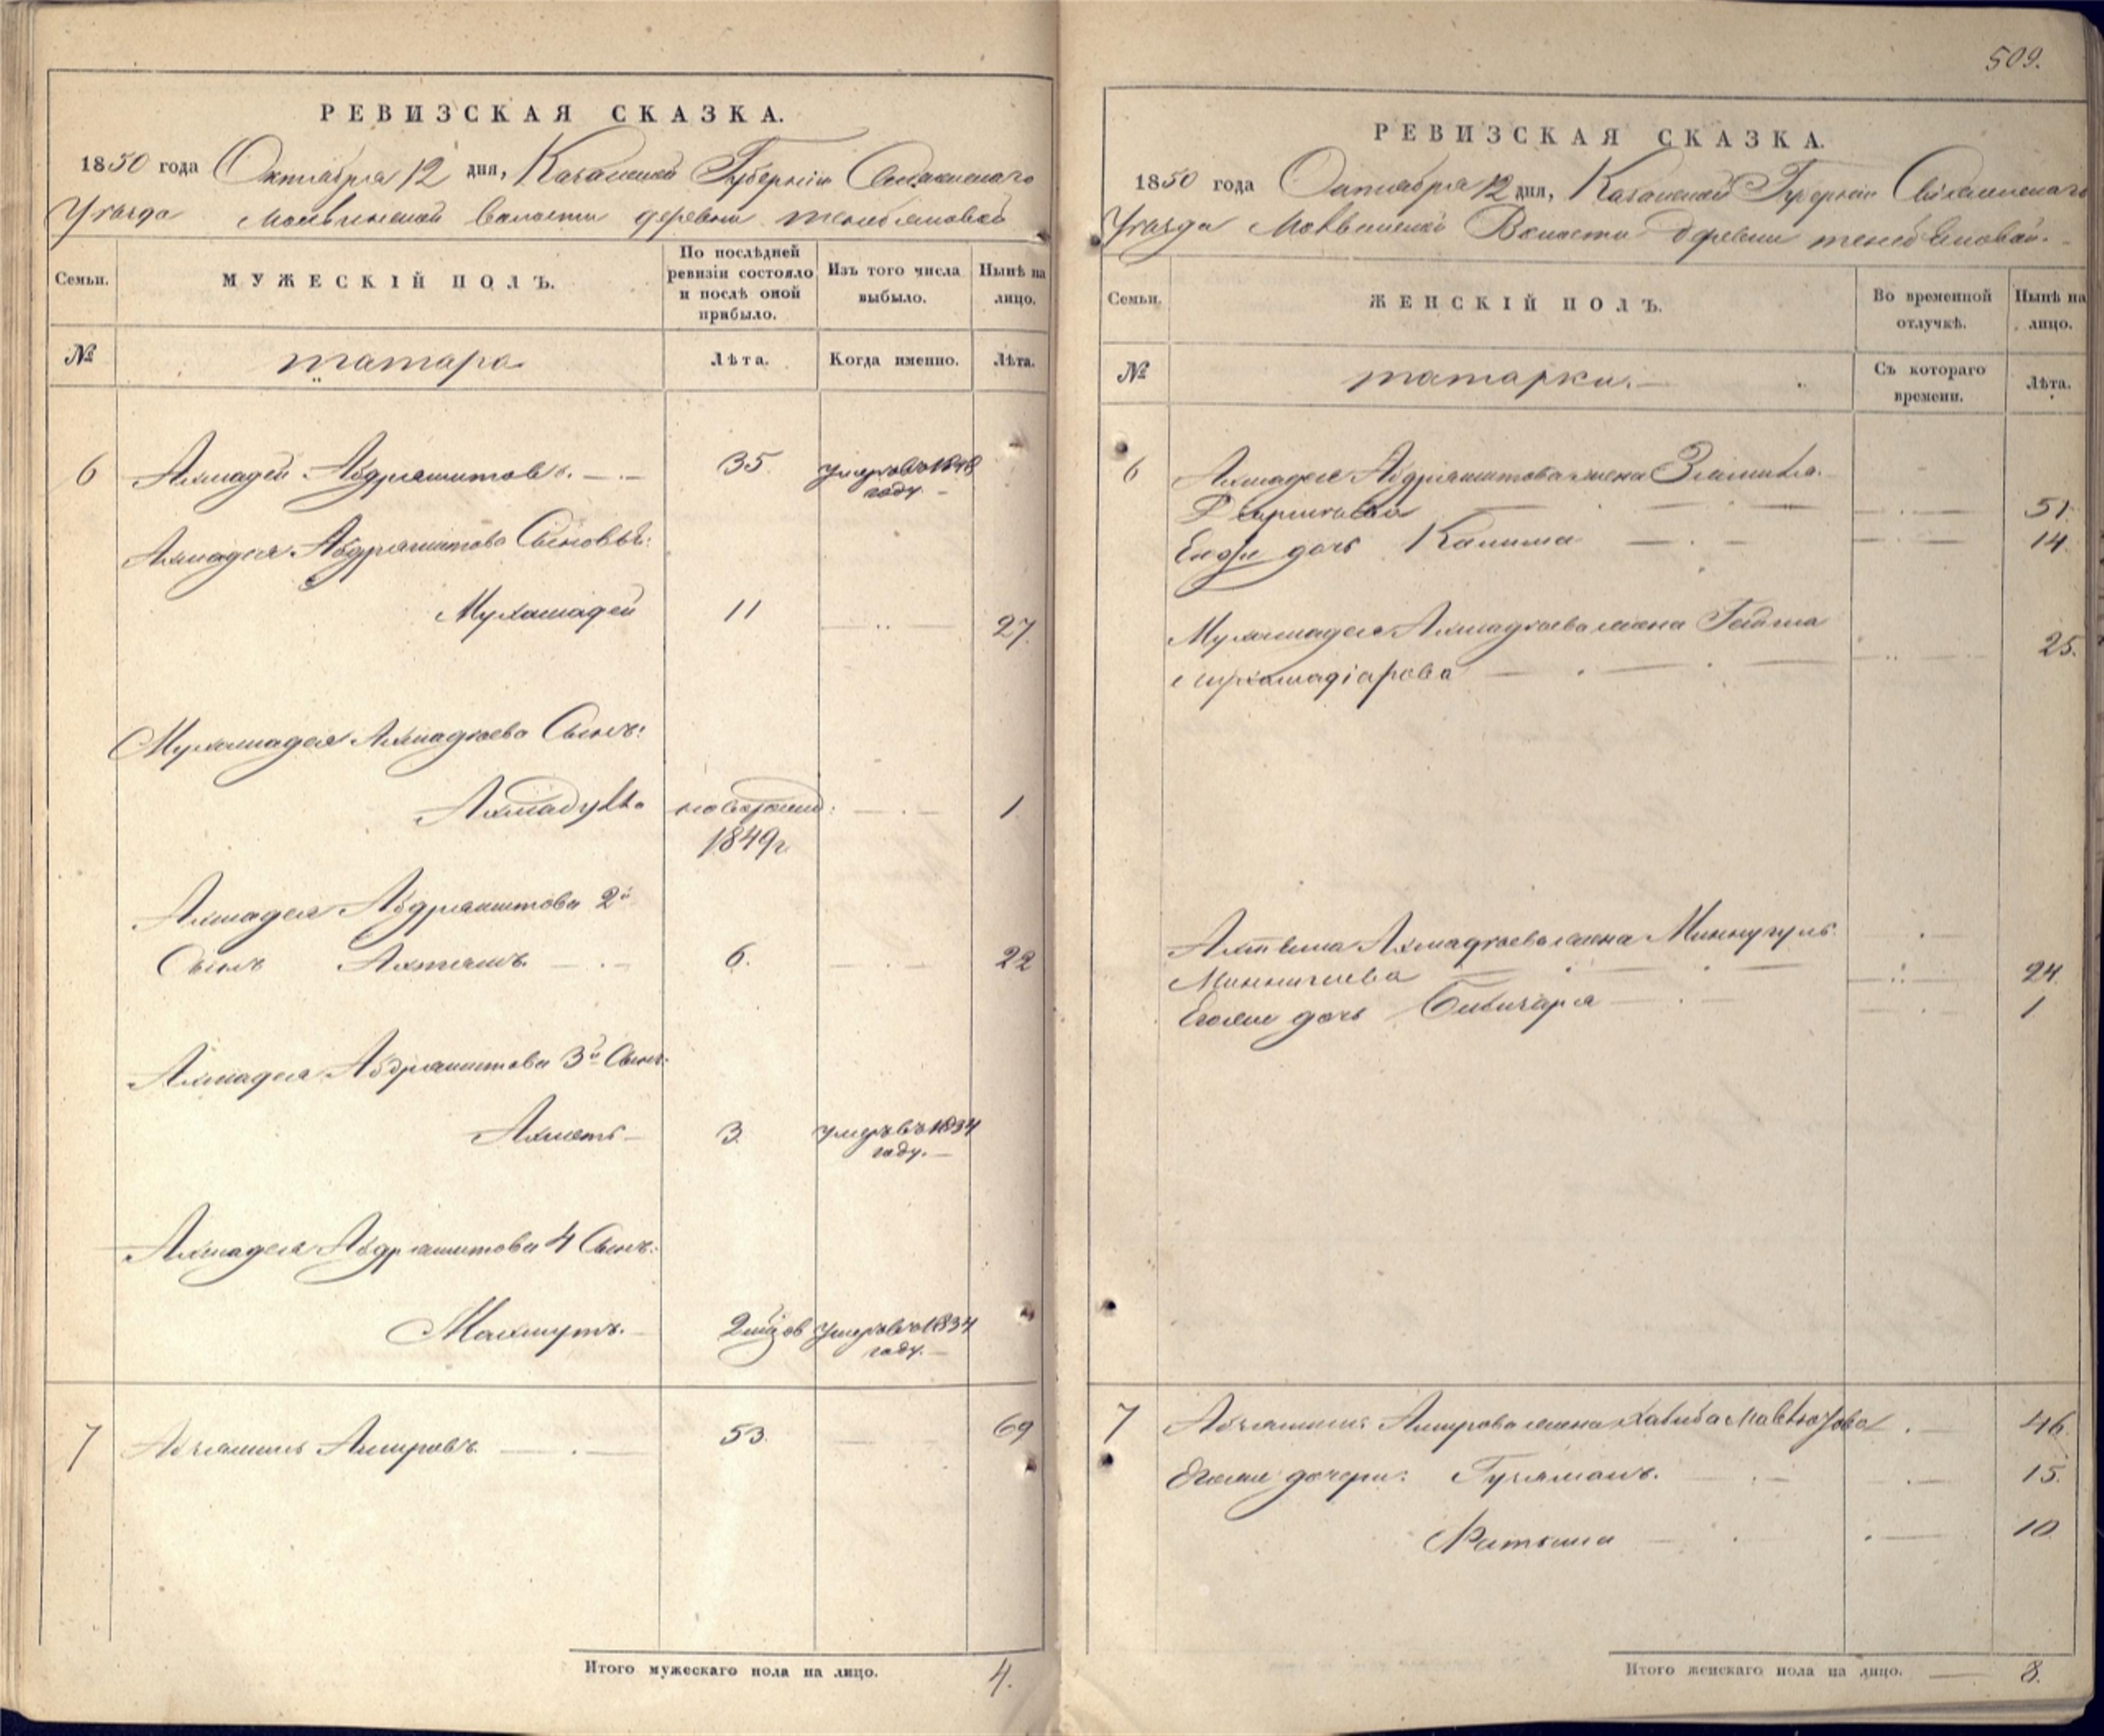 РЕВИЗСКАЯ СКАЗКА.
1850 года Октября 12 дня, Казанской Губернии Свіяжскаго
Уѣзда Молвинской Волости деревни
Семьи.
МУЖЕСКІЙ ПОЛЪ.
По послѣдней ревизіи состояло и послѣ оной прибыло.
Изъ того числа выбыло.
Нынѣ на лицо.
№
татара
Лѣта.
Когда именно.
Лѣта.
6 Ахмадей Абдряшитовъ. 35. умеръ въ 1848 году.
Ахмадея Абдряшитова Сыновья:
Мухамадей 11 27.
Мухамадея Ахмадѣева Сынъ:
новорожд: 1
1849 г.
Ахмадея Абдряшитова 2й
Сынъ Ахтямъ 6. 22
Ахмадея Абдряшитова 3й Сынъ:
Ахметъ 3. умеръ въ 1834 году.
Ахмадея Абдряшитова 4 Сынъ:
Махмутъ. умеръ въ 1834 году.
7 Амировъ 53. 69
Итого мужескаго пола на лицо. 4.
509.
РЕВИЗСКАЯ СКАЗКА.
1850 года Октября 12 дня, Казанской Губерніи Свіяжскаго
Уѣзда Молвинской Волости Деревни
Семьи.
ЖЕНСКІЙ ПОЛЪ.
Во временной отлучкѣ.
Нынѣ на лицо.
№
татарки.
Съ котораго времени.
Лѣта.
6 Ахмадея Абдряшитова жена
51.
Ево же дочь Калима 14.
Мухамадея Ахмадѣева жена
25.
Ахтяма Ахмадѣева жена Миннугуль
24.
Его же дочь 1
7 Амирова жена Хабиба 46.
Его же дочери: 15.
Фатыма 10.
Итого женскаго пола на лицо. 8.